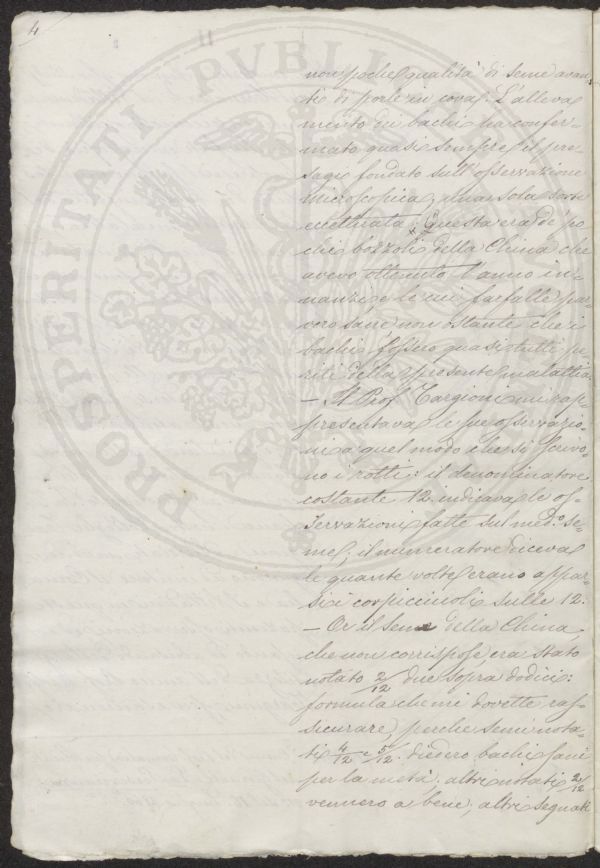 4
PROSPERITATI PVBLI
non poche qualità di seme avan
ti di porle in cova. L'alleva
mento dei bachi ha confer-
mato quasi sempre il pre-
sagio fondato sull'osservazione
microscopica, una sola sorte
eccettuata. Questa era di po
chi bozzoli della China che
avevo ottenuto l'anno in-
nanzi e le cui farfalle par
vero sane non ostante che i
bachi fossero quasi tutti pe
riti della presente malattia.
— Il Prof. Targioni mi rap-
presentava le sue osservazio
ni a quel modo che si scrivo
no i rotti: il denominatore
costante 12 indicava le os
servazioni fatte sul med.o se-
me; il numeratore diceva
le quante volte erano appar
si i corpicciuoli sulle 12.
— Or il seme della China
che non corrispose, era stato
notato 2/12 due sopra dodici:
formula che mi dovette ras-
sicurare, perche semi nota-
ti 4/12 e 5/12 diedero bachi sani
per la metà; altri notati 2/12
vennero a bene, altri segnati